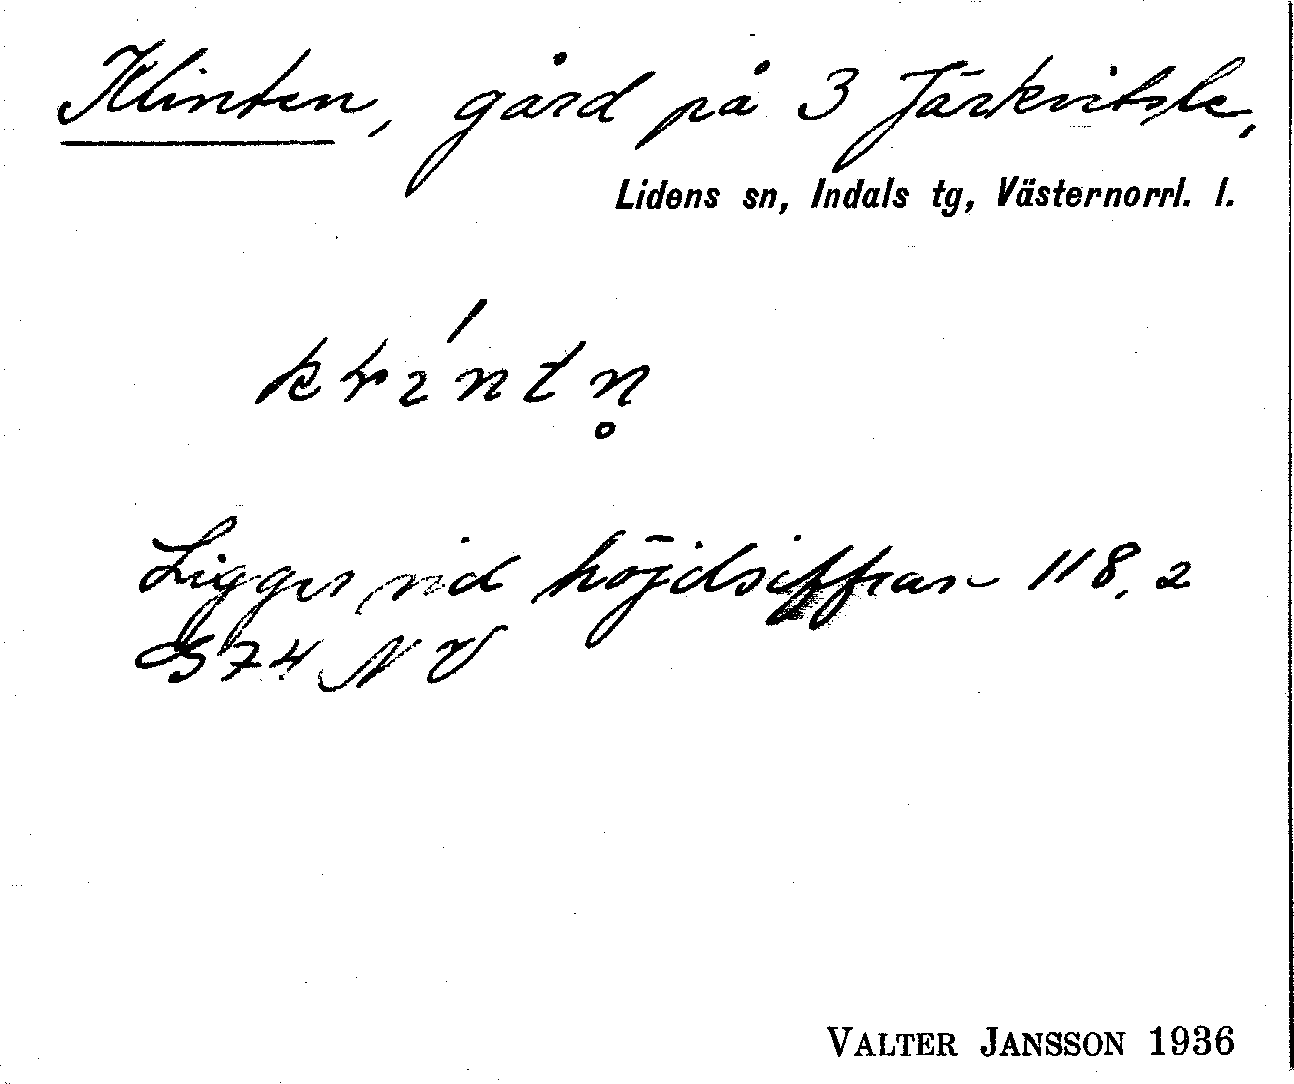 Klinten, gård på 3 Järkvitsle,
Lidens sn, Indals tg, Västernorrl. l.
Ligger vid höjdsiffran 118,2
G74 NV
VALTER JANSSON 1936